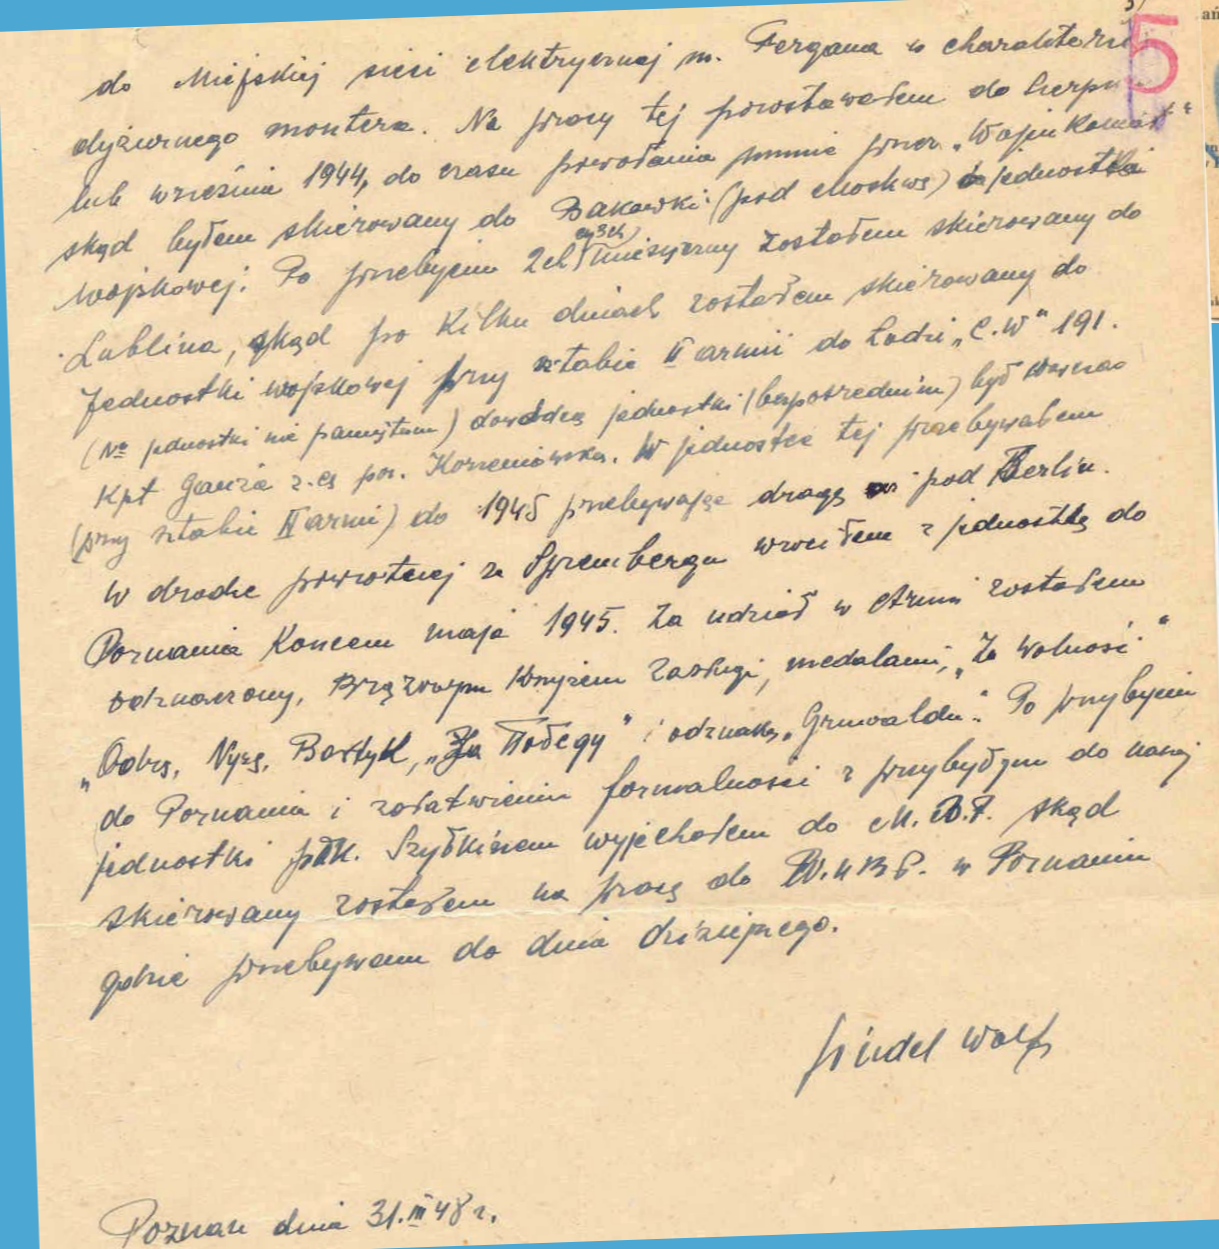 5
do Miejskiej sieci elektrycznej m. Fergana w charakterze
dyżurnego montera. Na pracy tej pozostawałem do sierpnia
lub wrześnie 1944, do czasu powołania mnie przez „Wojenkomat"
skąd byłem skierowany do Bakowki (pod Moskwą) jednostki
wojskowej. Po przebyciu 2ch czy 3ch miesięczny zostałem skierowany do
Lublina, skąd po kilku dniach zostałem skierowany do
Jednostki wojskowej przy sztabie II armii do Łodzi „C.W" 191.
(№ jednostki nie pamiętam) dowódcą jednostki (bezpośrednim) był wówczas
Kpt Ganza z-cą por. Korzeniowska. W jednostce tej przebywałem
(przy sztabie II armi) do 1945 przebywając drogę pod Berlin.
W drodze powrotnej ze Spremberga wróciłem z jednostką do
Poznania Koncem maja 1945. Za udział w Armii zostałem
odznaczony, Brązowym Krzyżem Zasługi, medalami, „Za Wolność"
„Odrę, Nysę, Bałtyk, „За Победу" i odznaką „Grunwaldu". Po przybyciu
do Poznania i załatwieniu formalności z przybyłym do naszej
jednostki płk. Szyłkinem wyjechałem do M.B.P. skąd
skierowany zostałem na pracę do W.U.B.P. w Poznaniu
gdzie przebywam do dnia dzisiejszego.
Fridel Wolf
Poznań dnia 31.III 48 r.